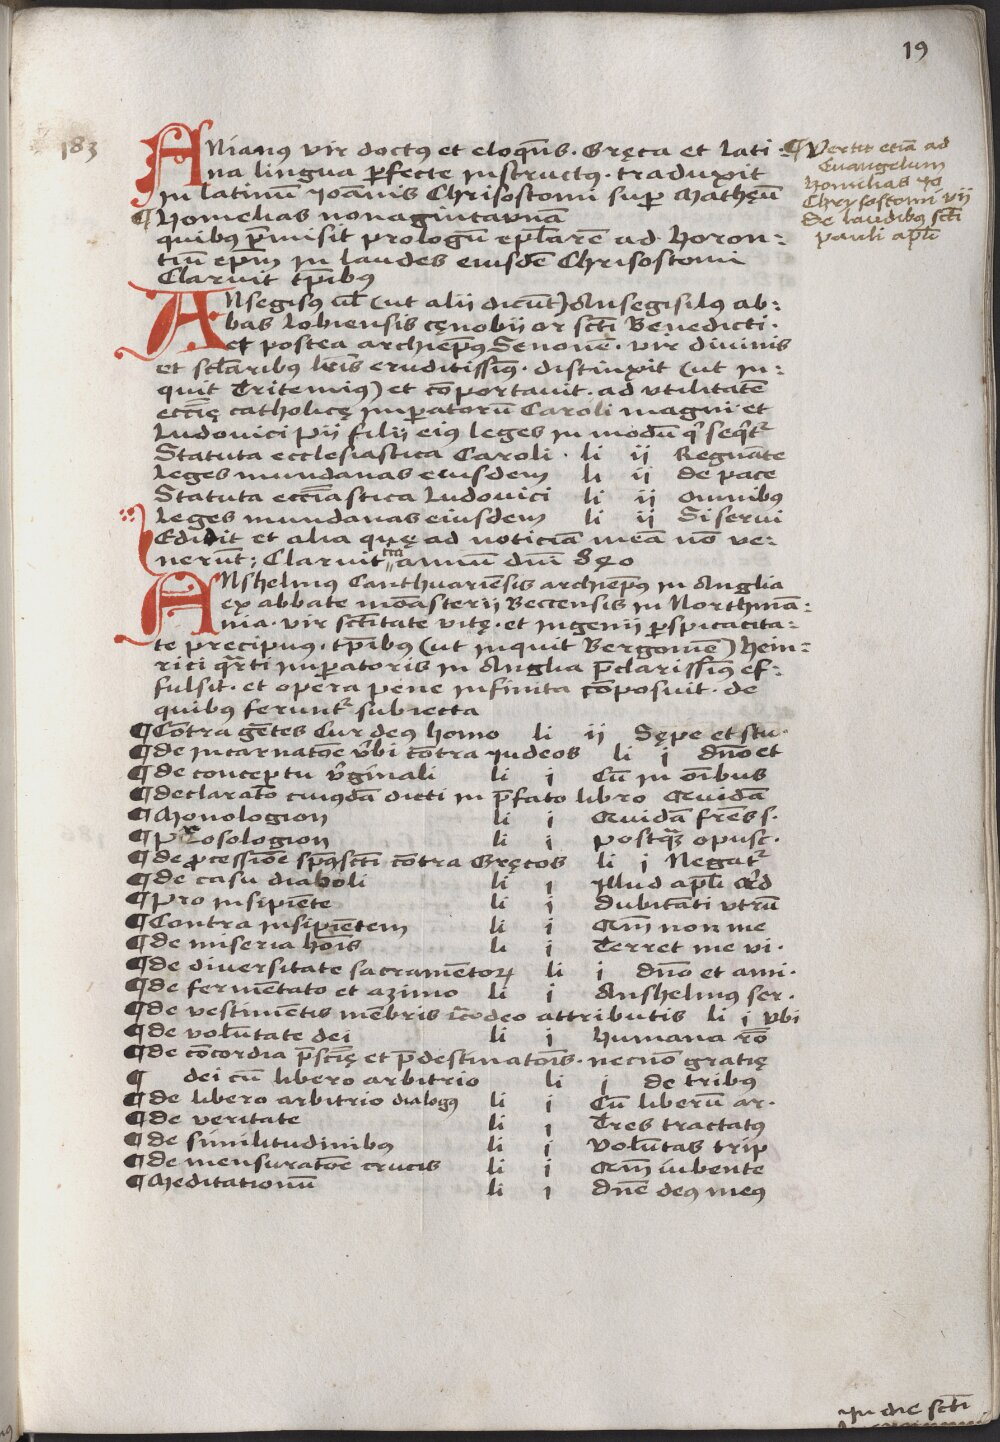 19
183
ANianꝰ vir doctꝰ et eloqñs · Gręca et Lati
na lingua ꝑfecte instructꝰ · traduxit
in latinū Joānis Chrisostomi suꝑ Mathęū
¶ Homelias nonagintaunā
quibꝰ p̄misit prologū epl̄arē ad Horon-
tiū ep̄m in laudes eiusdē Chrisostomi
Claruit tp̄ibꝰ
¶ Vertit etiā ad
Euangelium
Homelias
Chrysostomi vij
De laudibꝰ scti
pauli apl̄i
ANsegisꝰ ul̄ (ut alij dicūt) Ansegisilꝰ ab-
bas Lobiensis cęnobij or scti Benedicti ·
et postea archiep̄ꝰ Senonē · vir diuinis
et scl̄aribꝰ lr̄is eruditissimꝰ · distinxit (ut in-
quit Tritemius) et cōportauit · ad vtilitatē
eccl̄ię catholicę imꝑatorū Caroli magni et
Ludouici pij filij eiꝰ leges in modū q̄ seq̄tr
Statuta ecclesiastica Caroli · li ij Regnāte
Leges mundanas eiusdem li ij de pace
Statuta eccl̄iastica Ludouici li ij omnibꝰ
Leges mundanas eiusdem li ij Si serui
Edidit et alia quę ad noticiā meā nō ve-
nerūt; Claruit circa annū dn̄i 840
ANshelmꝰ Canthuariēsis archiep̄ꝰ in Anglia
ex abbate mōasterij Beccensis in Northmā-
nia · vir sctitate vitę · et ingenij ꝑspicacita-
te precipuꝰ · tp̄ibꝰ (ut inquit Bergomē) Hein-
rici q̄rti imꝑatoris in Anglia p̄clarissimꝰ ef-
fulsit · et opera pene infinita cōposuit · de
quibus feruntr subiecta
¶ Cōtra gētes Cur deꝰ homo li ij Sępe et stu·
¶ de incarnatōe v̄bi cōtra iudeos li j dn̄o et
¶ de conceptu v̄ginali li j Cū in oībus
¶ declaratō cuiusdā dicti in p̄fato libro Quidā
¶ Monologion li j Quidā frēs s·
¶ Prosologion li j postq̄ȝ opusc·
¶ de ꝓcessiōe spūsscti cōtra Gręcos li j Negatr
¶ de casu diaboli li j Illud apl̄i q̄d
¶ Pro insipiēte li j dubitāti vtrū
¶ Contra insipiētem li j Qm̄ non me
¶ de miseria hoīs li j Terret me vi·
¶ de diuersitate sacramētoꝝ li j dn̄o et ami·
¶ de fermētato et azimo li j Anshelmꝰ ser·
¶ de vestimētis mēbris deo attributis li j vbi
¶ de volūtate dei li j Humana rō
¶ de cōcordia p̄scię et p̄destinatōis · necnō gratię
¶ dei cū libero arbitrio li j de tribꝰ
¶ de libero arbitrio dialogꝰ li j Cū liberū ar·
¶ de veritate li j Tres tractatꝰ
¶ de similitudinibꝰ li j volūtas trip
¶ de mensuratōe crucis li j Qm̄ iubente
¶ Meditationū li j dn̄e deꝰ meꝰ
In die scti